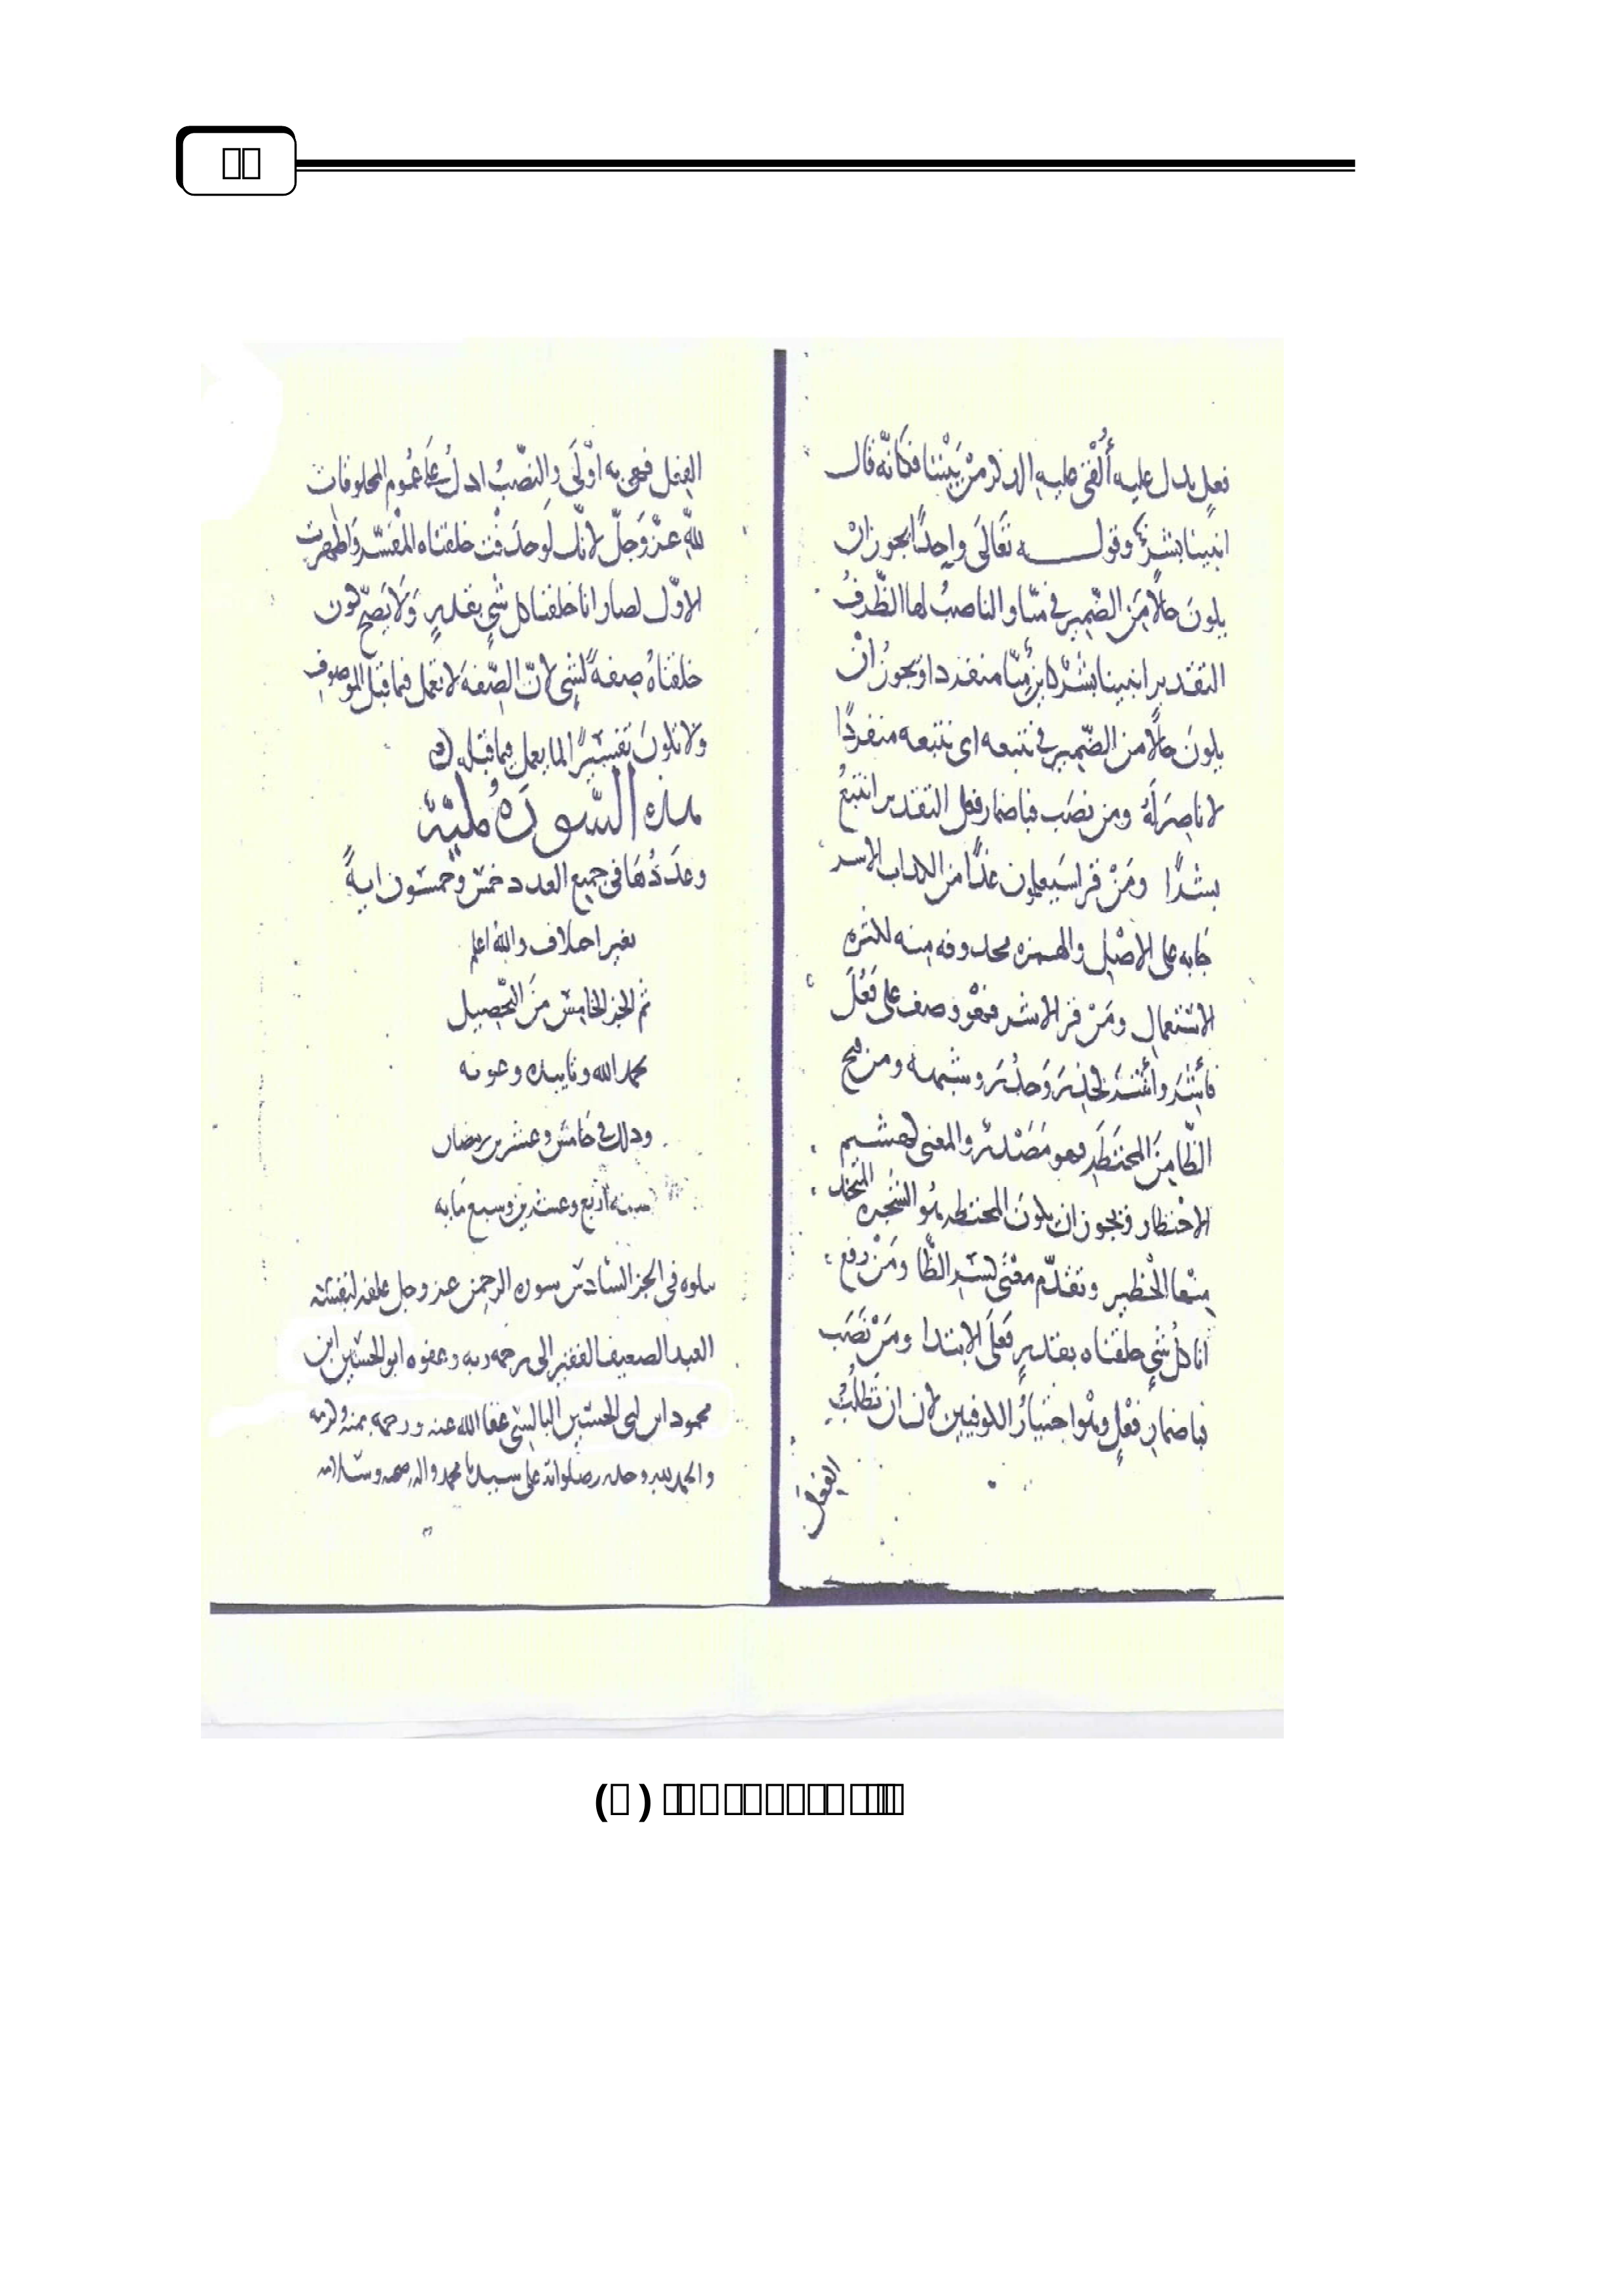 فعل يدل عليه أألقي عليه الذكر من بيننا فكأنه قال
انبينا بشرا وقوله تعالى واحدا يجوز ان
يكون حالا من الضمير في منا والناصب لها الظرف
التقدير انبينا بشرا كاين منا منفردا ويجوز ان
يكون حالا من الضمير في نتبعه اي نتبعه منفردا
لا ناصر له ومن نصب فباضمار فعل التقدير انتبع
بشرا ومن قرا سيعلمون غدا من الكذاب الاشر
جا به على الاصل والهمزه محذوفه منه لكثره
الاستعمال ومن قرا الاشر فهو وصف على فعل
فأشر وأشر كحذر وحذر وشبهه ومن فتح
الظا من المحتظر فهو مصدر والمعنى كهشيم
الاحتظار ويجوز ان يكون المحتظر هو الشجره المتخذ
منها الحظير وتقدم معنى كسر الظا ومن رفع
انا كل شي خلقناه بقدر فعلى الابتدا ومن نصب
فباضمار فعل وهو اختيار الكوفيين لان ان تطلب
الفعل
الفعل فهي به اولى والنصب ادل على عموم المخلوقات
لله عز وجل لانك لو حذفت خلقناه المفسر واظهرت
الاول لصار انا خلقنا كل شي بقدر ولا يصح كون
خلقناه صفة لشي لان الصفه لا تعمل فيما قبل الموصوف
ولا تكون تفسيرا لما يعمل فيما قبله
هذه السورة مكية
وعددها في جميع العدد خمس وخمسون اية
بغير اختلاف والله اعلم
تم الجز الخامس من التحصيل
بحمد الله وتاييده وعونه
وذلك في خامس وعشرين رمضان
سنه اربع وعشرين وسبع مايه
يتلوه في الجز السادس سوره الرحمن عز وجل علقه لنفسه
العبد الضعيف الفقير الى رحمه ربه وعفوه ابو الحسين ابن
محمود ابن ابي الحسين البالسي عفا الله عنه ورحمه بمنه وكرمه
والحمد لله وحده وصلواته على سيدنا محمد واله وصحبه وسلامه